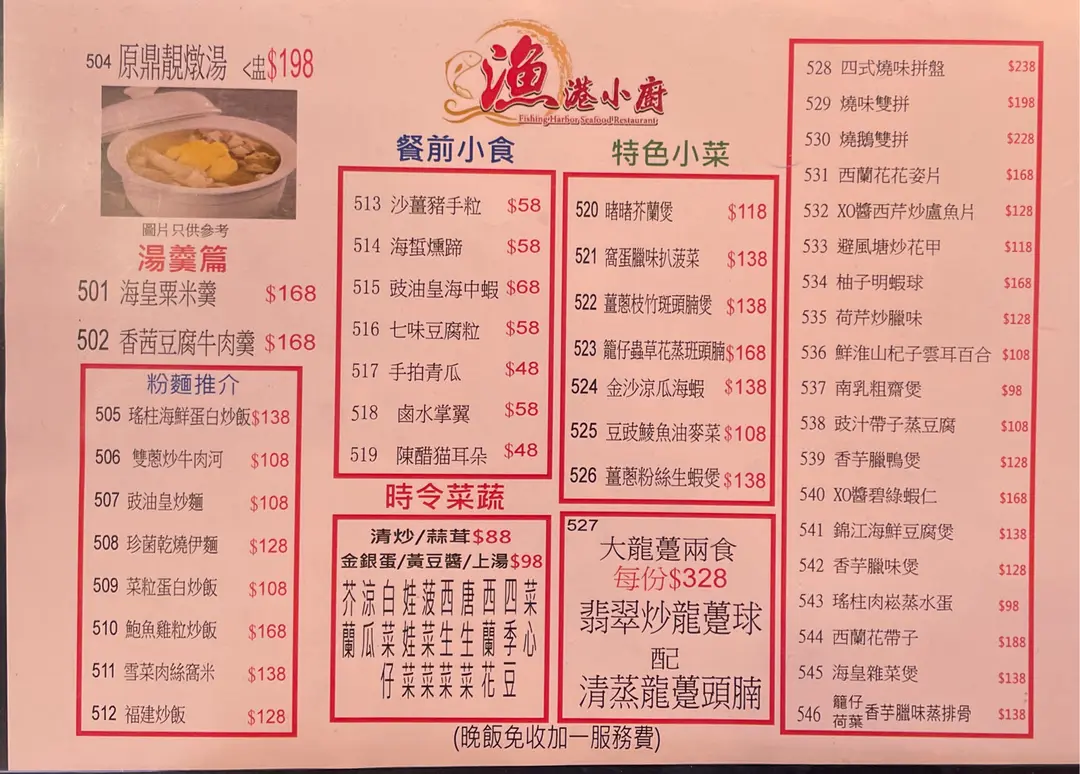 504 原鼎靚燉湯 <盅$198
圖片只供參考
湯羹篇
501 海皇粟米羹 $168
502 香茜豆腐牛肉羹 $168
粉麵推介
505 瑤柱海鮮蛋白炒飯 $138
506 雙蔥炒牛肉河 $108
507 豉油皇炒麵 $108
508 珍菌乾燒伊麵 $128
509 菜粒蛋白炒飯 $108
510 鮑魚雞粒炒飯 $168
511 雪菜肉絲窩米 $138
512 福建炒飯 $128
漁港小廚
Fishing Harbor Seafood Restaurant
餐前小食
513 沙薑豬手粒 $58
514 海蜇燻蹄 $58
515 豉油皇海中蝦 $68
516 七味豆腐粒 $58
517 手拍青瓜 $48
518 鹵水掌翼 $58
519 陳醋猫耳朵 $48
時令菜蔬
清炒/蒜茸$88
金銀蛋/黃豆醬/上湯$98
芥蘭
涼瓜
白菜仔
娃娃菜
菠菜
西生菜
唐生菜
西蘭花
四季豆
菜心
特色小菜
520 啫啫芥蘭煲 $118
521 窩蛋臘味扒菠菜 $138
522 薑蔥枝竹斑頭腩煲 $138
523 籠仔蟲草花蒸班頭腩 $168
524 金沙涼瓜海蝦 $138
525 豆豉鯪魚油麥菜 $108
526 薑蔥粉絲生蝦煲 $138
527
大龍躉兩食
每份$328
翡翠炒龍躉球
配
清蒸龍躉頭腩
528 四式燒味拼盤 $238
529 燒味雙拼 $198
530 燒鵝雙拼 $228
531 西蘭花花姿片 $168
532 XO醬西芹炒盧魚片 $128
533 避風塘炒花甲 $118
534 柚子明蝦球 $168
535 荷芹炒臘味 $128
536 鮮淮山杞子雲耳百合 $108
537 南乳粗齋煲 $98
538 豉汁帶子蒸豆腐 $108
539 香芋臘鴨煲 $128
540 XO醬碧綠蝦仁 $168
541 錦江海鮮豆腐煲 $138
542 香芋臘味煲 $128
543 瑤柱肉崧蒸水蛋 $98
544 西蘭花帶子 $188
545 海皇雜菜煲 $138
546 籠仔荷葉香芋臘味蒸排骨 $138
(晚飯免收加一服務費)